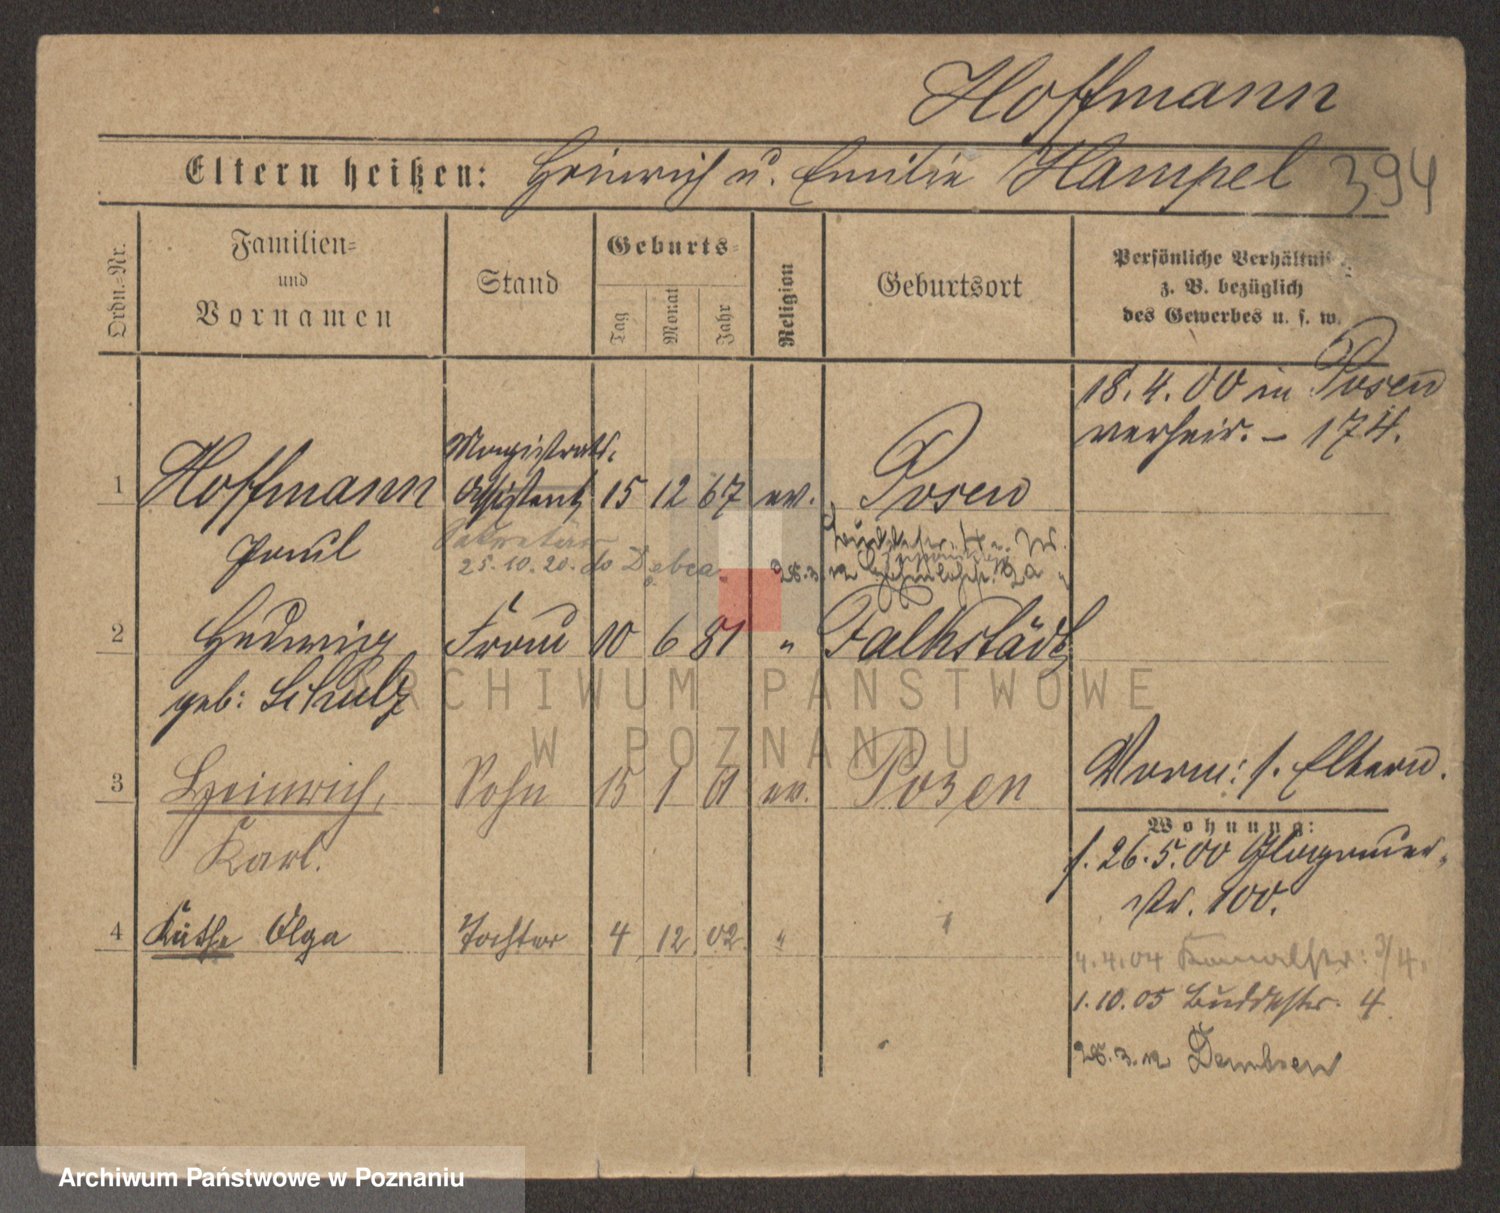 Hoffmann
Eltern heißen: Heinrich u. Emilie Hampel 394
Ordn.-Nr.
Familien-
und
Vornamen
Stand
Geburts-
Tag
Monat
Jahr
Religion
Geburtsort
Persönliche Verhältnis
z. B. bezüglich
des Gewerbes u. s. w.
18. 4. 00 in Posen
verheir. – 174.
1 Hoffmann Magistrats- Assistent 15 12 67 ev. Posen
Paul Sekretär
25. 10. 20. do Debca
28. 3. 12
2 Hedwig Frau 10 6 81 " Falkstädt
geb: Schulz
ARCHIWUM PAŃSTWOWE
W POZNANIU
3 Heinrich, Sohn 15 1 01 ev. Posen
Karl.
Vorm: s. Eltern.
Wohnung:
s. 26. 5. 00 Glogauer-
str. 100.
4 Käthe Olga Tochter 4 12 02 " "
4. 4. 04 3/4.
1. 10. 05 Buddestr. 4
28. 3. 12 Dembsen
Archiwum Państwowe w Poznaniu